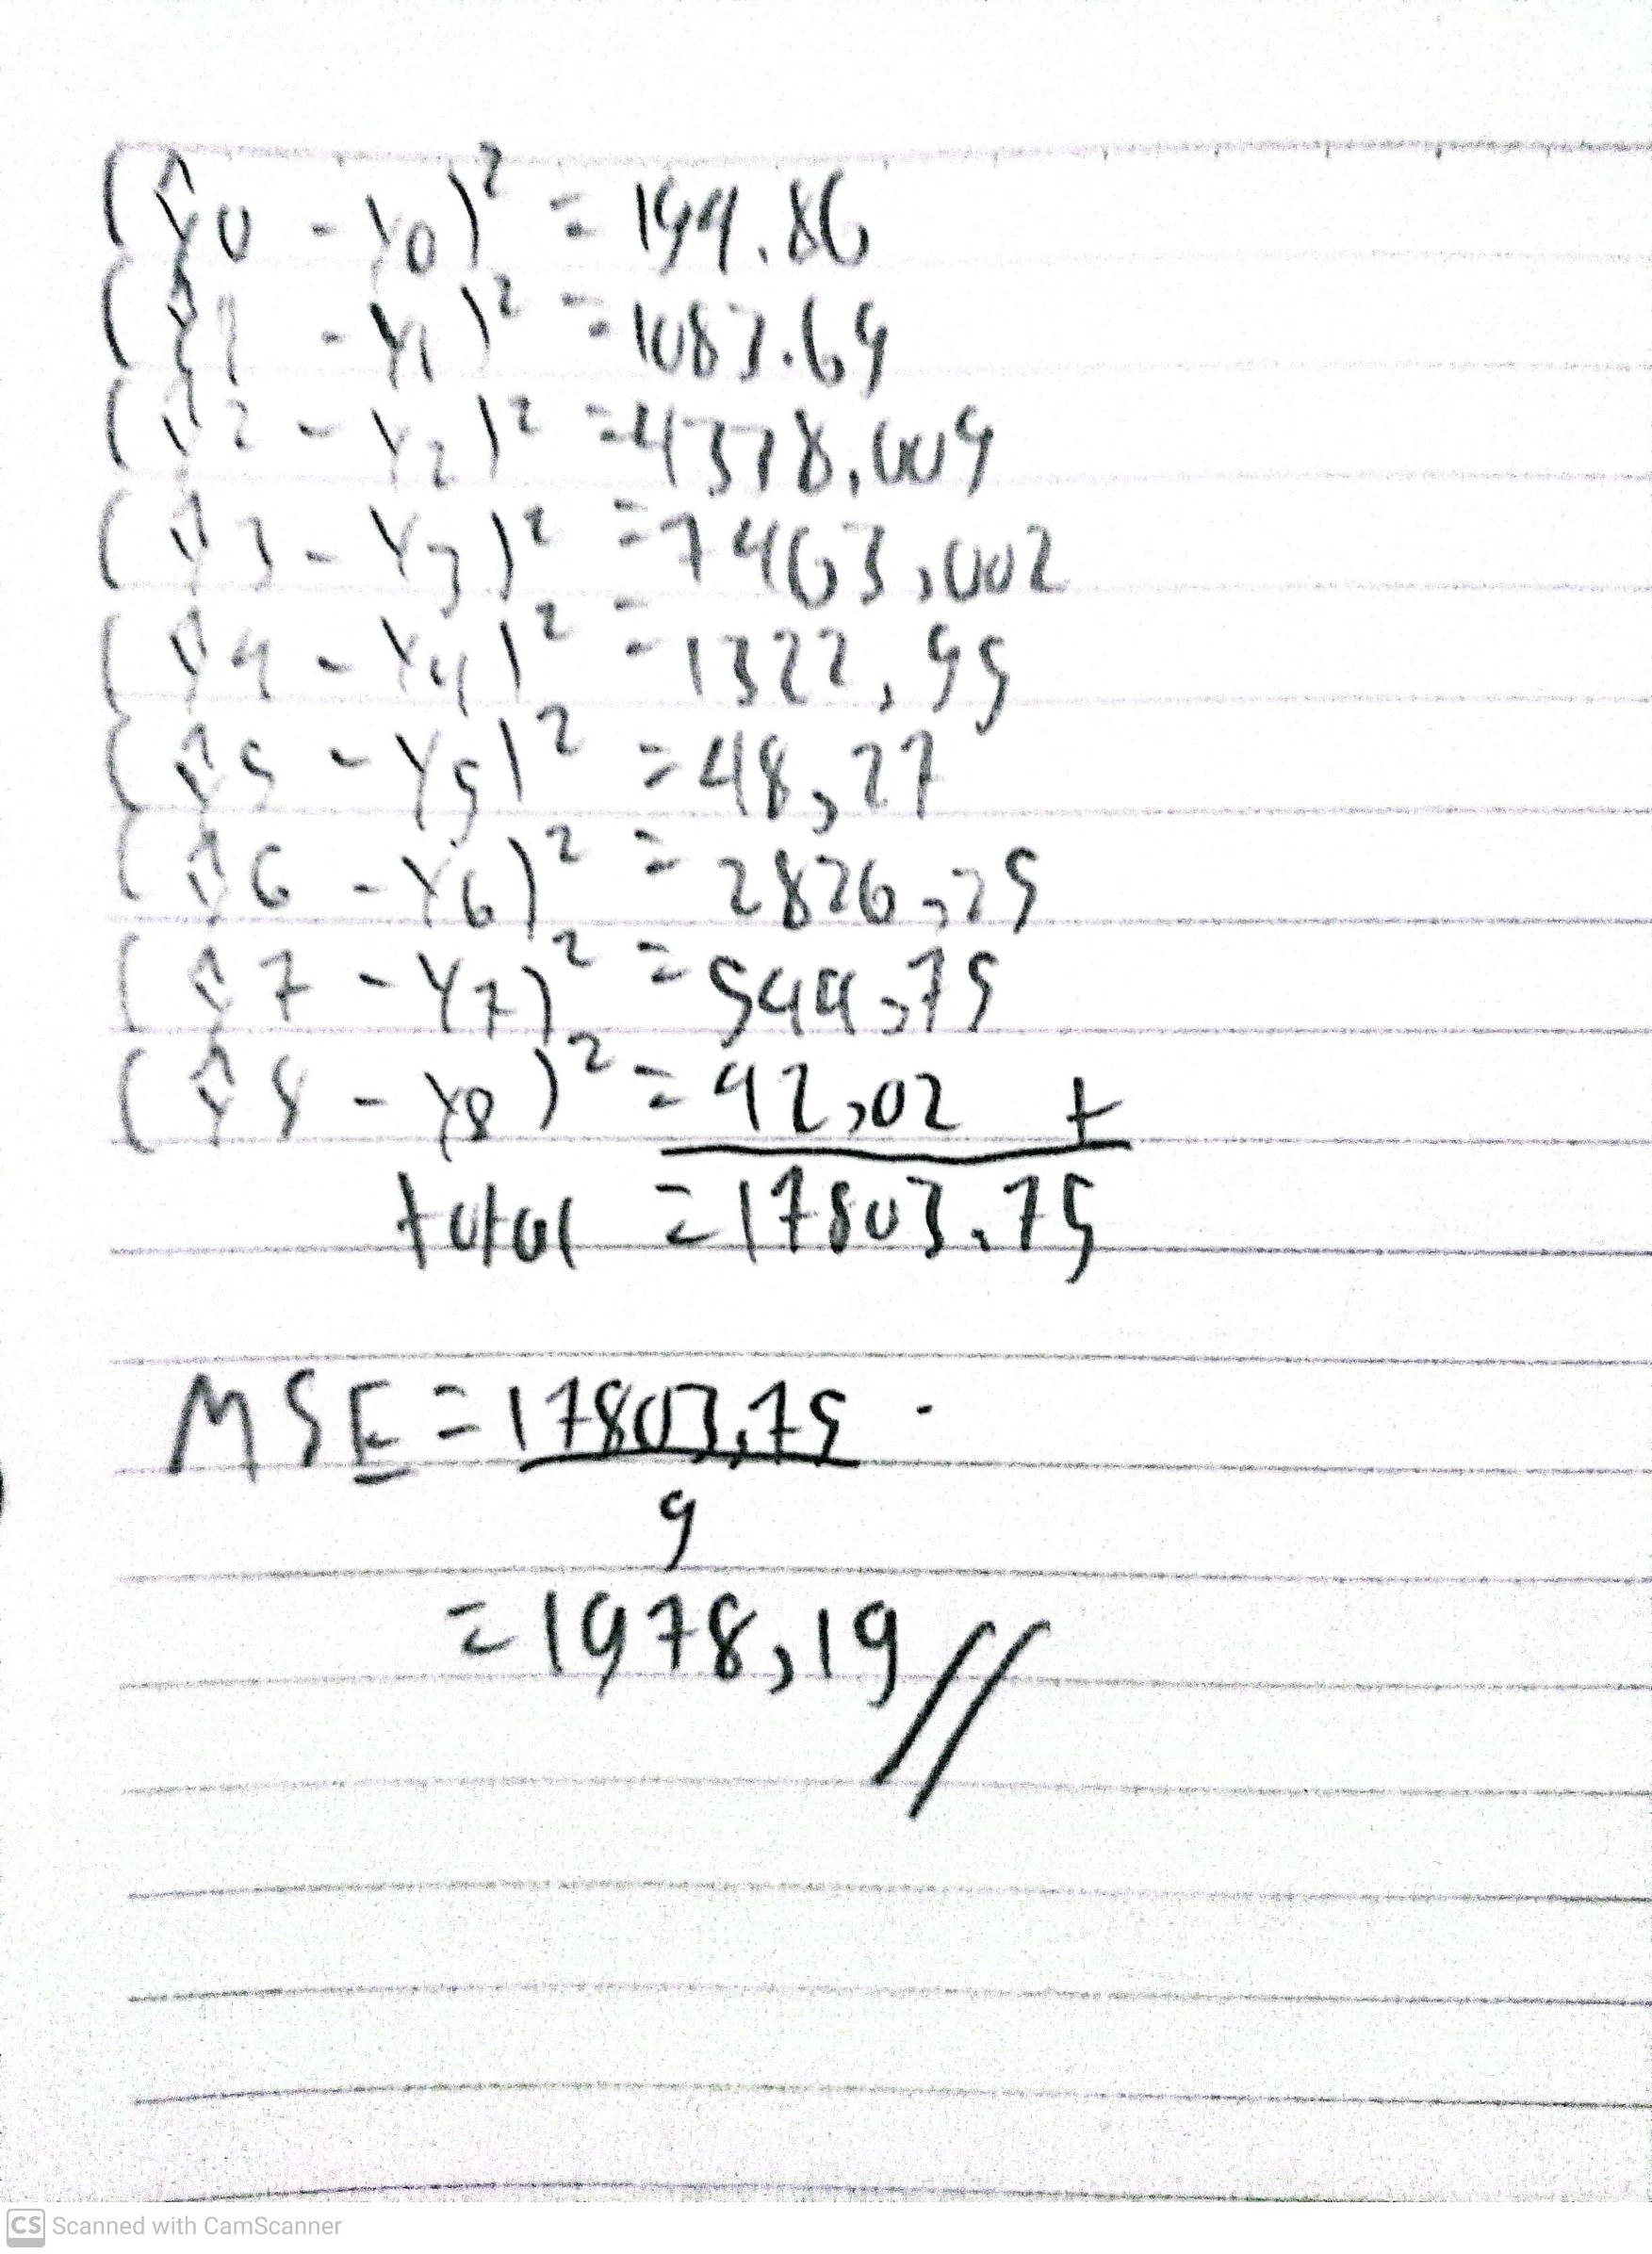 (Ŷ0 - Y0)² = 144.86
(Ŷ1 - Y1)² = 1083.64
(Ŷ2 - Y2)² = 4328,009
(Ŷ3 - Y3)² = 7463,002
(Ŷ4 - Y4)² = 1322,95
(Ŷ5 - Y5)² = 48,27
(Ŷ6 - Y6)² = 2826,25
(Ŷ7 - Y7)² = 544,75
(Ŷ8 - Y8)² = 42,02 +
total = 17803.75
MSE = 17803,75
9
= 1978,19 //
CS Scanned with CamScanner